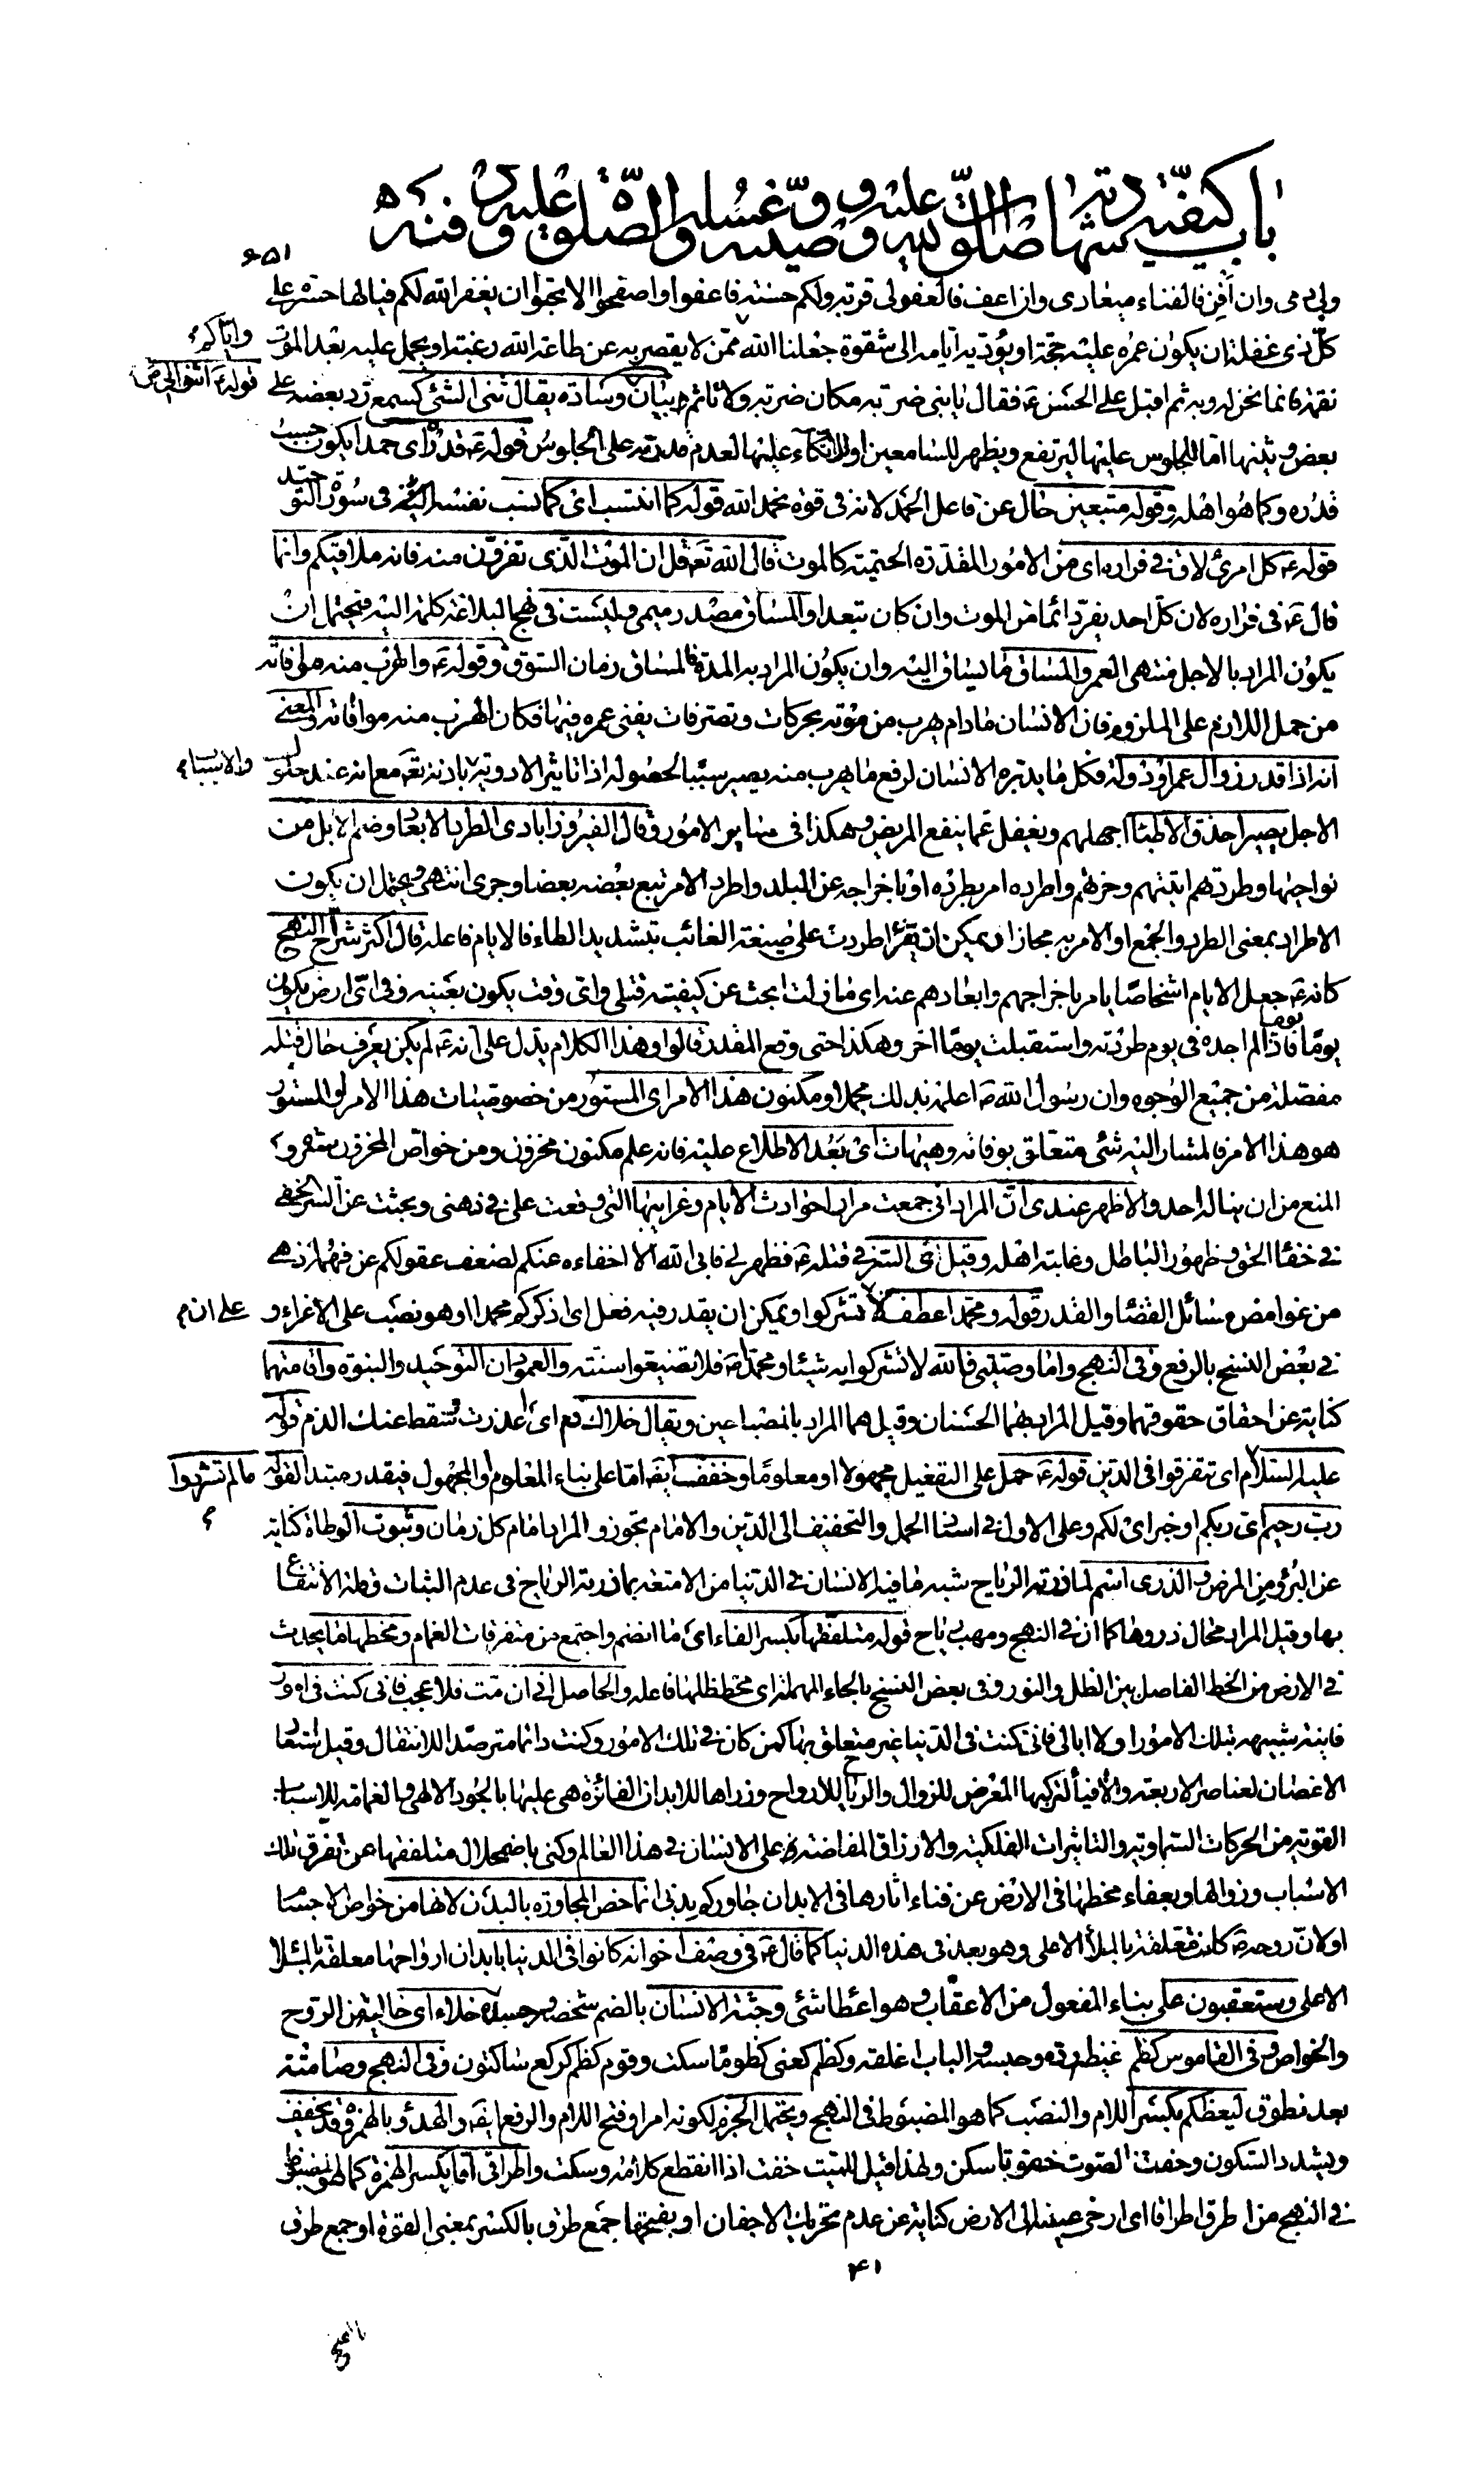 باب كيفية شهادته صلوات الله عليه ووصيته وغسله والصلاة عليه ودفنه
٦٥١
ولي دمي وان أفن فالفناء ميعادي وان اعف فالعفو لي قربة ولكم حسنة فاعفوا واصفحوا الا تحبوا ان يغفر الله لكم فيالها حسرة على
كل ذي غفلة ان يكون عمره عليه حجة او يؤديه ايامه الى شقوة جعلنا الله واياكم ممن لا يقصر به عن طاعة الله رغبة او يحمل عليه بعد الموت
نقمة فانما نحن له وبه ثم اقبل على الحسن ع فقال يا بني ضربة مكان ضربة ولا تأثم بيان قوله ع اثنوا لي وسادة يقال ثنى الشيء كسمع رد بعضه على
بعض وثنيها اما للجلوس عليها ليرتفع ويظهر للسامعين او للاتكاء عليها لعدم قدرته على الجلوس قوله ع قدره اي حمدا يكون حسب
قدره وكما هو اهله وقوله متبعين حال عن فاعل الحمد لانه في قوة نحمد الله قوله كما انتسب اي كما نسب نفسه اليه في سورة التوحيد
قوله ع كل امرئ لاق في فراره اي من الامور المقدرة الحتمية كالموت قال الله تع قل ان الموت الذي تفرون منه فانه ملاقيكم وانما
قال ع في فراره لان كل احد يفر دائما من الموت وان كان تبعدا والمساق مصدر ميمي وليست في نهج البلاغة كلمة اليه فيحتمل ان
يكون المراد بالاجل منتهى العمر والمساق ما يساق اليه وان يكون المراد به المدة فالمساق زمان السوق وقوله ع والهرب منه موافاته
من حمل اللازم على الملزوم فان الانسان مادام يهرب من موته بحركات وتصرفات يفنى عمره فيها فكان الهرب منه موافاته والمعنى
انه اذا قدر زوال عمر او دولة فكل ما يدبره الانسان لرفع ما يهرب منه يصير سببا لحصوله اذ تاثير الادوية والاسباب باذنه تع مع انه عند حلول
الاجل يصير احذق الاطباء اجهلهم ويغفل عما ينفع المريض وهكذا في ساير الامور وقال الفيروزابادي الطرد الابعاد وضم الابل من
نواحيها وطردتهم اتيتهم وجزتهم واطرده امر بطرده او باخراجه عن البلد واطرد الامر تبع بعضه بعضا وجرى انتهى ويحتمل ان يكون
الاطراد بمعنى الطرد والجمع او الامر به مجازا ويمكن ان يقرأ اطردت على صيغة الغائب بتشديد الطاء فالايام فاعله قال اكثر شراح النهج
كانه ع جعل الايام اشخاصا يامر باخراجهم وابعادهم عنه اي ما زلت ابحث عن كيفية قتلي واي وقت يكون بعينه وفي اي ارض يكون
يوما يوما فاذا لم اجده في يوم طردته واستقبلت يوما اخر وهكذا حتى وقع المقدر قالوا وهذا الكلام يدل على انه ع لم يكن يعرف حال قتله
مفصلة من جميع الوجوه وان رسول الله ص اعلمه بذلك مجملا ومكنون هذا الامر اي المستور من خصوصيات هذا الامر او المستور
هو هذا الامر فالمشار اليه شيء متعلق بوفاته وهيهات اي بعد الاطلاع عليه فانه علم مكنون مخزون ومن خواص المخزون ستره و
المنع من ان يناله احد والاظهر عندي ان المراد اني جمعت مرارا حوادث الايام وغرايبها التي وقعت علي في ذهني وبحثت عن السر الخفي
في خفاء الحق وظهور الباطل وغلبة اهله وقيل اي السر في قتله ع فظهر لي فابى الله الا اخفاءه عنكم لضعف عقولكم عن فهمه اذ هي
من غوامض مسائل القضاء والقدر قوله ومحمدا عطف على ان لا تشركوا ويمكن ان يقدر فيه فعل اي اذكركم محمدا او هو نصب على الاغراء و
في بعض النسخ بالرفع وفي النهج واما وصيتي فالله لا تشركوا به شيئا ومحمدا ص فلا تضيعوا سنته والعمودان التوحيد والنبوة واقامتهما
كناية عن احقاق حقوقهما وقيل المراد بهما الحسنان وقيل هما المراد بالمصباحين ويقال خلاك ذم اي اعذرت وسقط عنك الذم قوله
عليه السلام ما لم تشردوا اي تتفرقوا في الدين قوله ع حمل على التفعيل مجهولا او معلوما وخفف ايضا اما على بناء المعلوم او المجهول فيقدر مبتدأ لقوله
رب رحيم اي ربكم او خبر اي لكم وعلى الاول في اسناد الحمل والتخفيف الى الدين والامام تجوز والمراد امام كل زمان وثبوت الوطاة كناية
عن البرؤ من المرض والذرى اسم لما ذرته الرياح شبه ما فيه الانسان في الدنيا من الامتعة بما ذرته الرياح في عدم الثبات وقلة الانتفاع
بها وقيل المراد محال ذروها كما ان في النهج ومهب رياح قوله متلفقها بكسر الفاء اي ما انضم واجتمع من متفرقات الغمام ومخطها ما يحدث
في الارض من الخط الفاصل بين الظل والنور وفي بعض النسخ بالحاء المهملة اي محط ظلها فاعله والحاصل اني ان مت فلا عجب فاني كنت في امور
فانية شبيهة بتلك الامور او لا ابالي فاني كنت في الدنيا غير متعلق بها كمن كان في تلك الامور وكنت دائما مترصدا للانتقال وقيل استعار
الاغصان لعناصر الاربعة والافياء لتركيبها المعرض للزوال والرياح للارواح وذراها للابدان الفائزة هي عليها بالجود الالهي والغمامة للاسباب
القوية من الحركات السماوية والتاثيرات الفلكية والارزاق المفاضة على الانسان في هذا العالم وكنى باضمحلال متلفقها عن تفرق تلك
الاسباب وزوالها وبعفاء مخطها في الارض عن فناء اثارها في الابدان جاوركم بدني انما خص المجاورة بالبدن لانها من خواص الاجسام
او لان روحه ع كانت معلقة بالملأ الاعلى وهو بعد في هذه الدنيا كما قال ع في وصف اخوانه كانوا في الدنيا بابدان ارواحها معلقة بالملأ
الاعلى وستعقبون على بناء المفعول من الاعقاب وهو اعطاء شيء وجثة الانسان بالضم شخصه وجسده خلاء اي خالية من الروح
والخواص وفي القاموس كظم غيظه رده وحبسه والباب اغلقه وكظم كعني كظوما سكت وقوم كظم كركع ساكتون وفي النهج وصامتة
بعد نطوق ليعظكم بكسر اللام والنصب كما هو المضبوط في النهج ويحتمل الجزم لكونه امرا وفتح اللام والرفع ايضا والهدؤ بالهمزة وقد يخفف
ويشدد السكون وخفت الصوت خفوتا سكن ولهذا قيل للميت خفت اذا انقطع كلامه وسكت واطراقي اما بكسر الهمزة كما هو المضبوط
في النهج من اطرق اطراقا اي ارخى عينيه الى الارض كناية عن عدم تحريك الاجفان او بفتحها جمع طرق بالكسر بمعنى القوة او جمع طرق
٤١
بالفتح